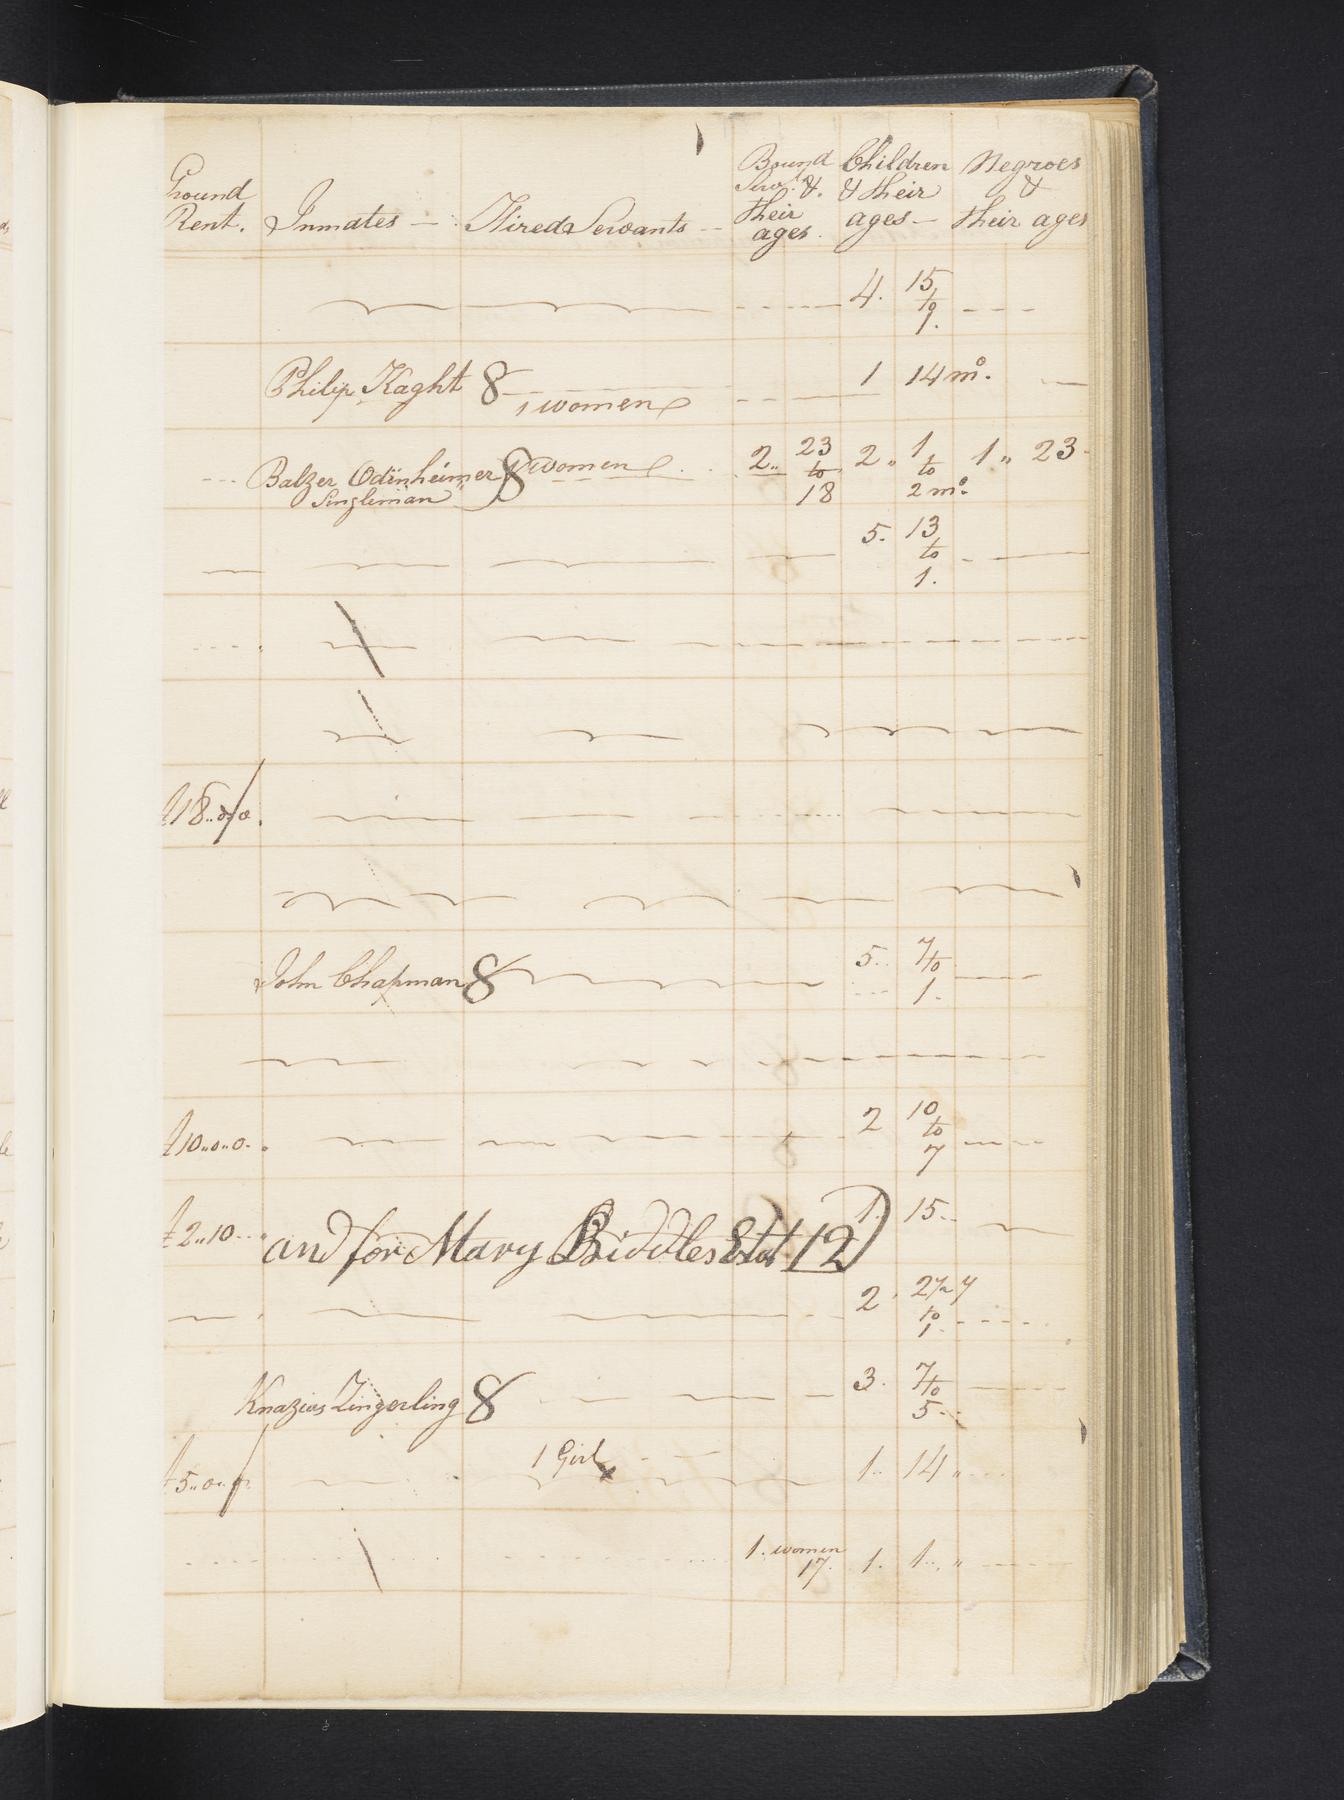 Ground Rent. Inmates — Hired Servants — Bound Servts. & their ages. Children & their ages — Negroes & their ages
4. 15 to 1.
Philip Kaght 8 1 women 1 14 mo.
Balzer Odinheimer Singleman 8 1 women 2 23 to 18 2 1 to 2 mo. 1 23
5. 13 to 1.
£18..0/0.
John Chapman 8 5. 7 to 1.
£10..0..0. 2 10 to 7
£2..10 and for Mary Biddles Estat 12) 1. 15
2 27 y to 1
Knazius Zingerling 8 3. 7 to 5
£5..0.. 1 Girl x 1.. 14
1. women 17. 1. 1..